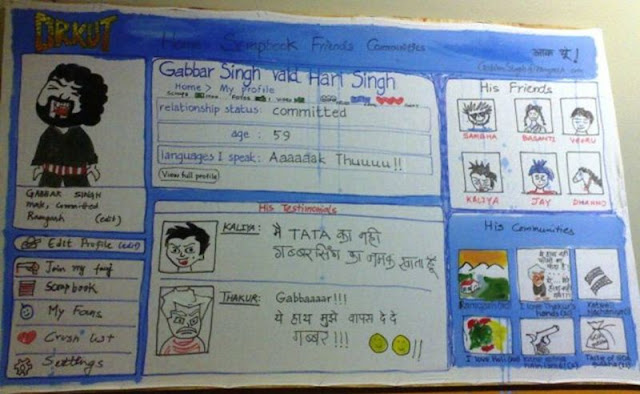 ORKUT
Home Scrapbook Friends Communities
आक थू !
Gabbar Singh Vald Hari Singh
Home > My profile
relationship status: committed
age : 59
languages I speak: Aaaaaak Thuuuu!!
View full profile
GABBAR SINGH
male, committed
Ramgarh (edit)
Edit Profile (edit)
Join my
Scrapbook
My Fans
Crush List
Settings
His Testimonials
KALIYA:
मै TATA का नही
गब्बरसिंग का नमक खाता हूँ
THAKUR:
Gabbaaaar!!!
ये हाथ मुझे वापस दे दे
गब्बर !!!
!!
His Friends
SAMBHA BASANTI VEERU
KALIYA JAY DHANNO
His Communities
I love Thakur's
I love Holi